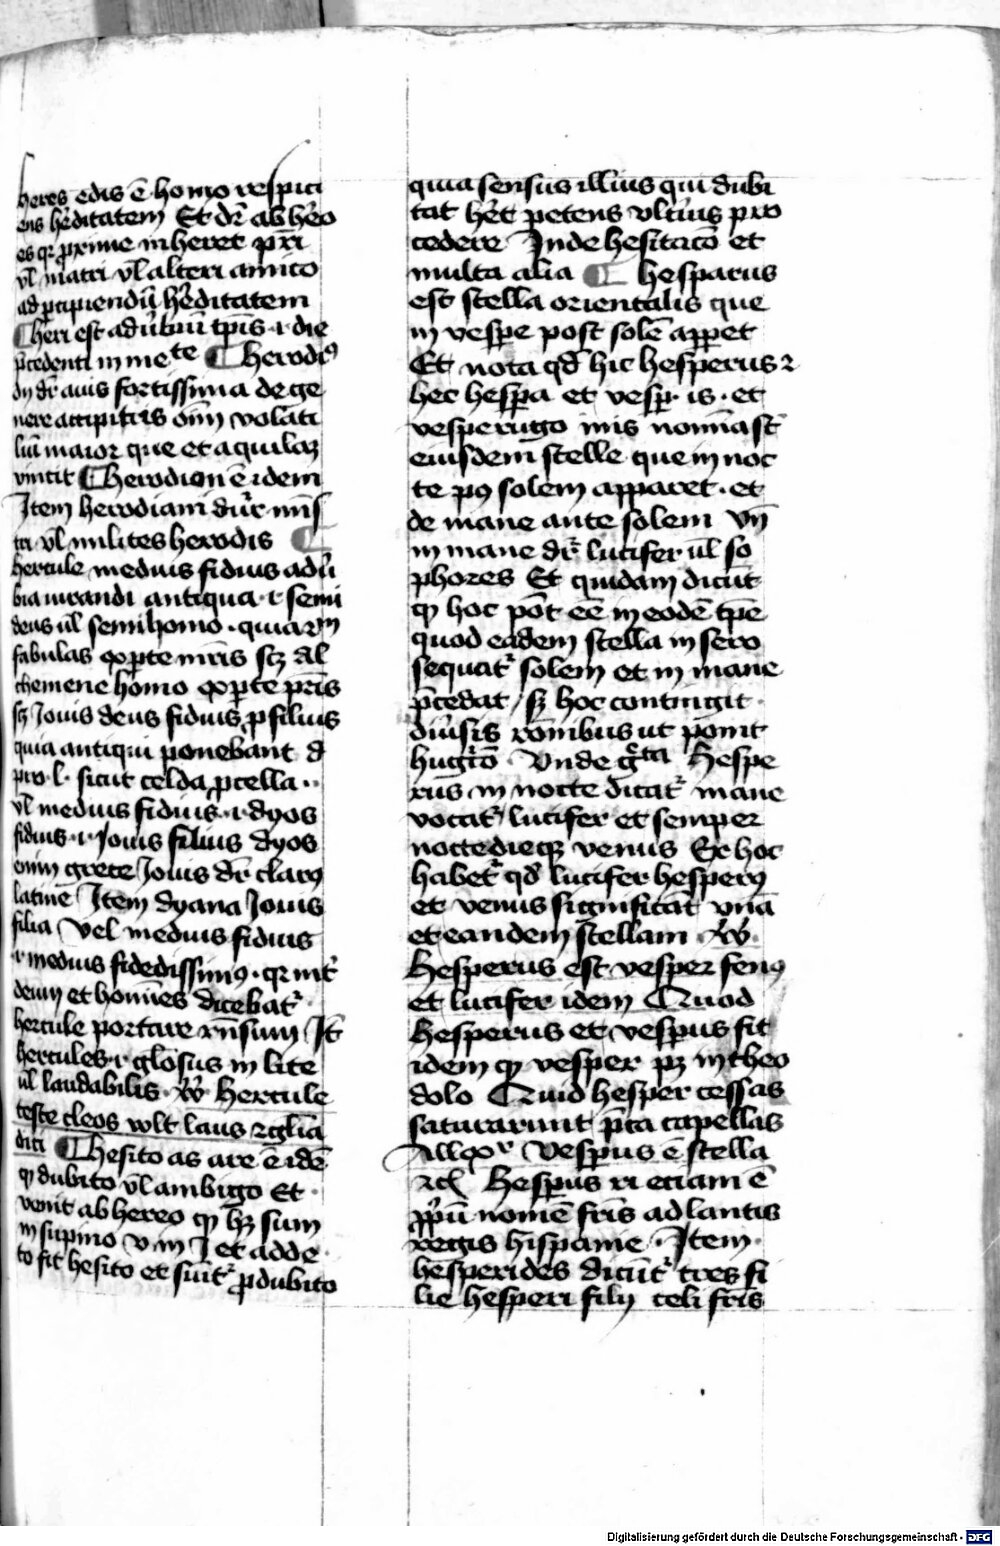 heres edis ē homo respici
ens hēditatem Et dr̄ ab hēo
es qr̄ proxime inheret pr̄i
ul̄ matri ul̄ alteri amico
ad ꝑcipiendū hēditatem
heri est adūbiū tp̄is ·i· die
p̄cedenti in me te herodiꝰ
dij dr̄ auis fortissima de ge
nere accipitris oīm volati
liū maior que et aquilaꝝ
vincit herodion ē idem
Item herodiani dūr mīs
tri ul̄ milites herodis
hercule medius fidius adū
bia iurandi antiqua ·i· semi
deus ul̄ semihomo · quia
fabulas ex ꝑte mr̄is scꝫ al
chemene homo ex ꝑte pr̄is
scꝫ Jouis deus fidius ꝓ filius
quia antiqui ponebant d
pro ·l· sicut celda ꝓ cella ··
ul̄ medius fidius ·i· dyos
fidius ·i· Jouis filius dyos
enim grece Jouis dr̄ clarꝰ
latine Item dyana Jouis
filia Vel medius fidius
·i· medius fidedissimꝰ · qr̄ int̄
deum et homīes dicebat᷑ ·
hercule portare Jt̄
hercules ·i· glōsus in lite
ul̄ laudabilis · Hercule
teste cleos wlt laus ⁊ gl̄ia
dici hesito as are ē idē
qd dubito ul̄ ambigo Et ·
venit ab hereo sum
in supino v in I et adde ·
to fit hesito et sūit᷑ ꝓ dubito
quia sensus illius qui dubi
tat hēt petens ult̄ius pro
cedere Inde hesitacō et
multa alia hesparus
est stella orientalis que
in vespe post solē apꝑet
Et nota qd̄ hic hesperus ⁊
hec hesꝑa et vesꝑ · is · et
vesperugo inis noīa st̄
eiusdem stelle que in noc
te pꝰ solem apparet · et
de mane ante solem Vn̄
in mane dr̄ lucifer ul̄ fo
phores Et quidam dicūt
qd hoc pōt eē in eodē tp̄e
quod eadem stella in sero
sequat᷑ solem et in mane
p̄cedat / sꝫ hoc contingit ·
diūsis rōnibus ut ponit
hugucō · Vnde Hespe
rus in nocte dicat᷑ mane
vocat᷑ lucifer et semper
nocte dieqꝫ venus Ex hoc
habet᷑ qd̄ lucifer hesperꝰ
et venus significāt vnā
et eandem stellam
Hesperus est vesper
et lucifer idem Quod
Hesperus et vesꝑus sit
idem qd vesper pꝫ in theo
dolo Quid hesper cessas
saturarunt p̄ta capellas
Vesꝑus ē stella
Hesꝑus ri etiam ē
ꝓpū nomē fr̄is adlantis
regis hispanie · Item ·
hesperides dicūt᷑ tres fi
lie hesperi filij celi fr̄is
Digitalisierung gefördert durch die Deutsche Forschungsgemeinschaft - DFG